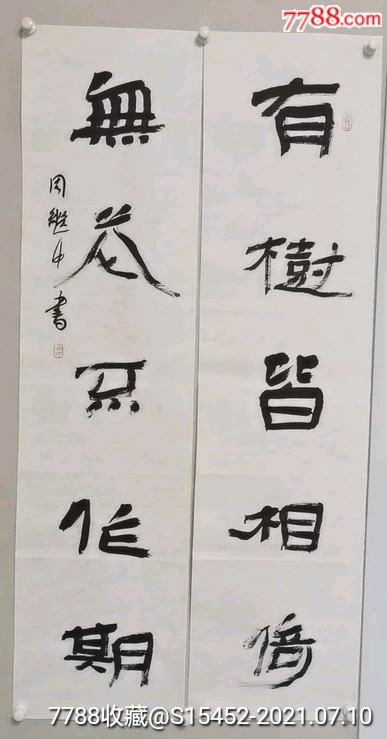 7788.com
有樹皆相倚
無花不作期
周繼中書
7788收藏@S15452-2021.07.10